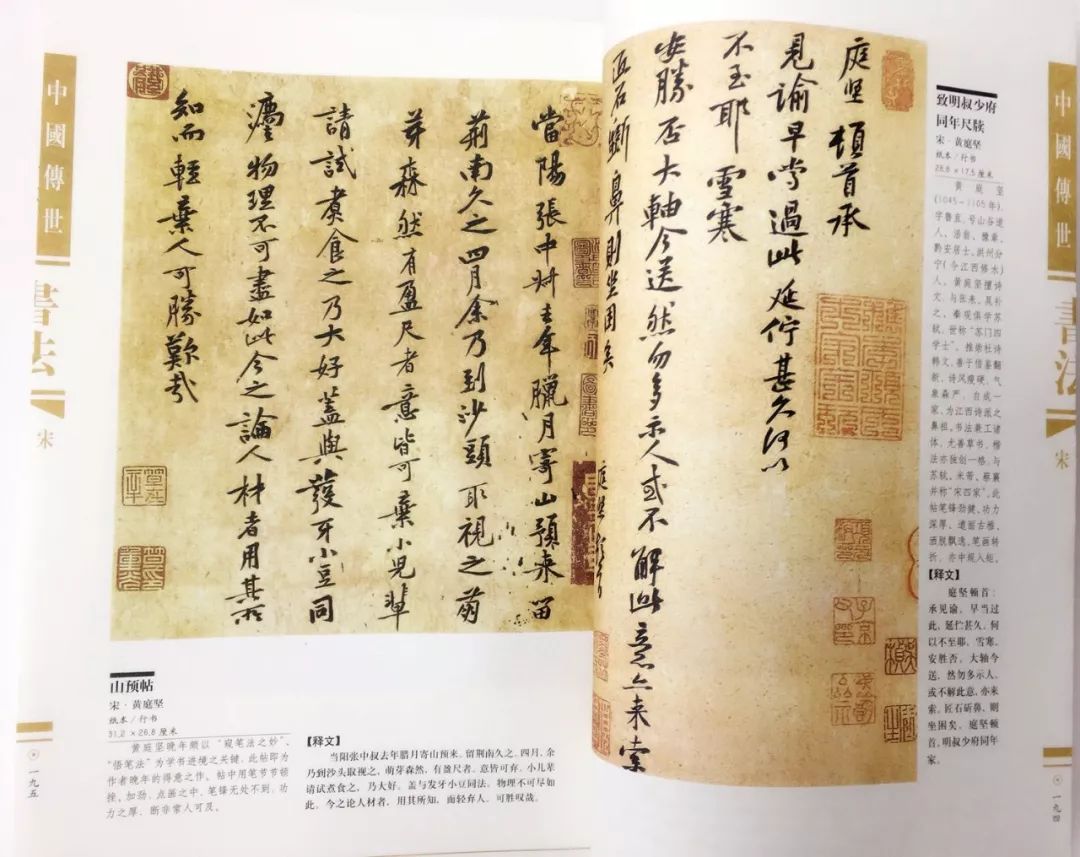 中國傳世
書法
宋
一九四
致明叔少府
同年尺牍
宋·黄庭坚
纸本/行书
26.6×17.5厘米
黄庭坚
(1045-1105年),
字鲁直,号山谷道
人、涪翁、豫章、
黔安居士,洪州分
宁(今江西修水)
人。黄庭坚擅诗
文,与张耒、晁补
之、秦观俱学苏
轼,世称“苏门四
学士”。推崇杜诗
韩文,善于借鉴翻
新,诗风瘦硬,气
象森严,自成一
家,为江西诗派之
鼻祖。书法兼工诸
体,尤善草书,楷
法亦独创一格,与
苏轼、米芾、蔡襄
并称“宋四家”。此
帖笔锋劲健,功力
深厚,遒丽古雅,
洒脱飘逸,笔画转
折,亦中规入矩。
【释文】
庭坚顿首:
承见谕,早当过
此,延伫甚久,何
以不至耶。雪寒,
安胜否。大轴今
送,然勿多示人,
或不解此意,亦来
索。匠石斫鼻,则
坐困矣。庭坚顿
首,明叔少府同年
家。
庭堅頓首承
見諭早嘗過此延佇甚久何以
不至耶雪寒
安勝否大軸今送然勿多示人或不解此意亦来索
匠石斲鼻則坐困矣
庭堅
當陽張中叔去年臘月寄山預来留
荊南久之四月余乃到沙頭取視之萌
芽森然有盈尺者意皆可棄小兒輩
請試煮食之乃大好蓋與發牙小豆同
灋物理不可盡如此今之論人材者用其所
知而輕棄人可勝歎哉
山预帖
宋·黄庭坚
纸本/行书
31.2×26.8厘米
黄庭坚晚年颇以“窥笔法之妙”、
“悟笔法”为学书进境之关键,此帖即为
作者晚年的得意之作。帖中用笔节节顿
挫,加劲,点画之中,笔锋无处不到,功
力之厚,断非常人可及。
【释文】
当阳张中叔去年腊月寄山预来,留荆南久之,四月,余
乃到沙头取视之,萌芽森然,有盈尺者。意皆可弃。小儿辈
请试煮食之,乃大好。盖与发牙小豆同法。物理不可尽如
此。今之论人材者,用其所知,而轻弃人,可胜叹哉。
中國傳世
書法
宋
一九五